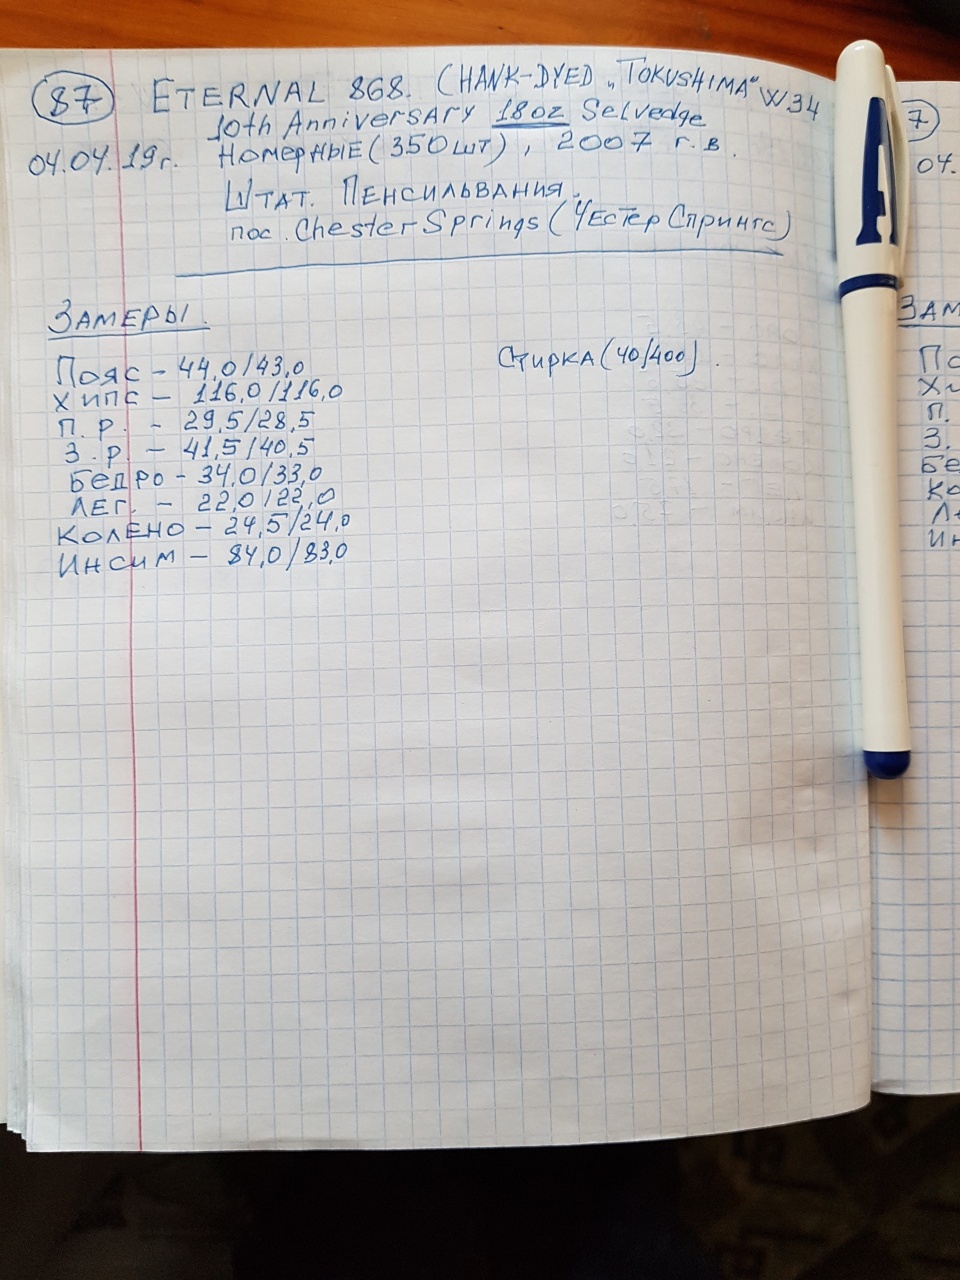 87 ETERNAL 868. (HANK-DYED „TOKUSHIMA" W34
10th Anniversary 18oz Selvedge
04.04.19г. Номерные (350шт), 2007 г.в.
Штат. Пенсильвания.
пос. Chester Springs (Честер Спрингс)
Замеры.
Пояс – 44,0/43,0 Стирка (40/400).
Хипс – 116,0/116,0
П.Р. – 29,5/28,5
З.Р. – 41,5/40,5
Бедро – 34,0/33,0
ЛЕГ. – 22,0/22,0
Колено – 24,5/24,0
Инсим – 84,0/83,0
7
04.
Зам
По
Хи
П.
З.
Бе
Ко
Ле
Ин